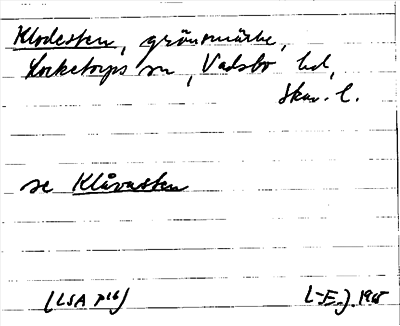 Klodesten, gränsmärke,
Locketorps sn, Vadsbo hd,
Skar. l.
se Klåvasten
(LSA P16) (-E.) 1965